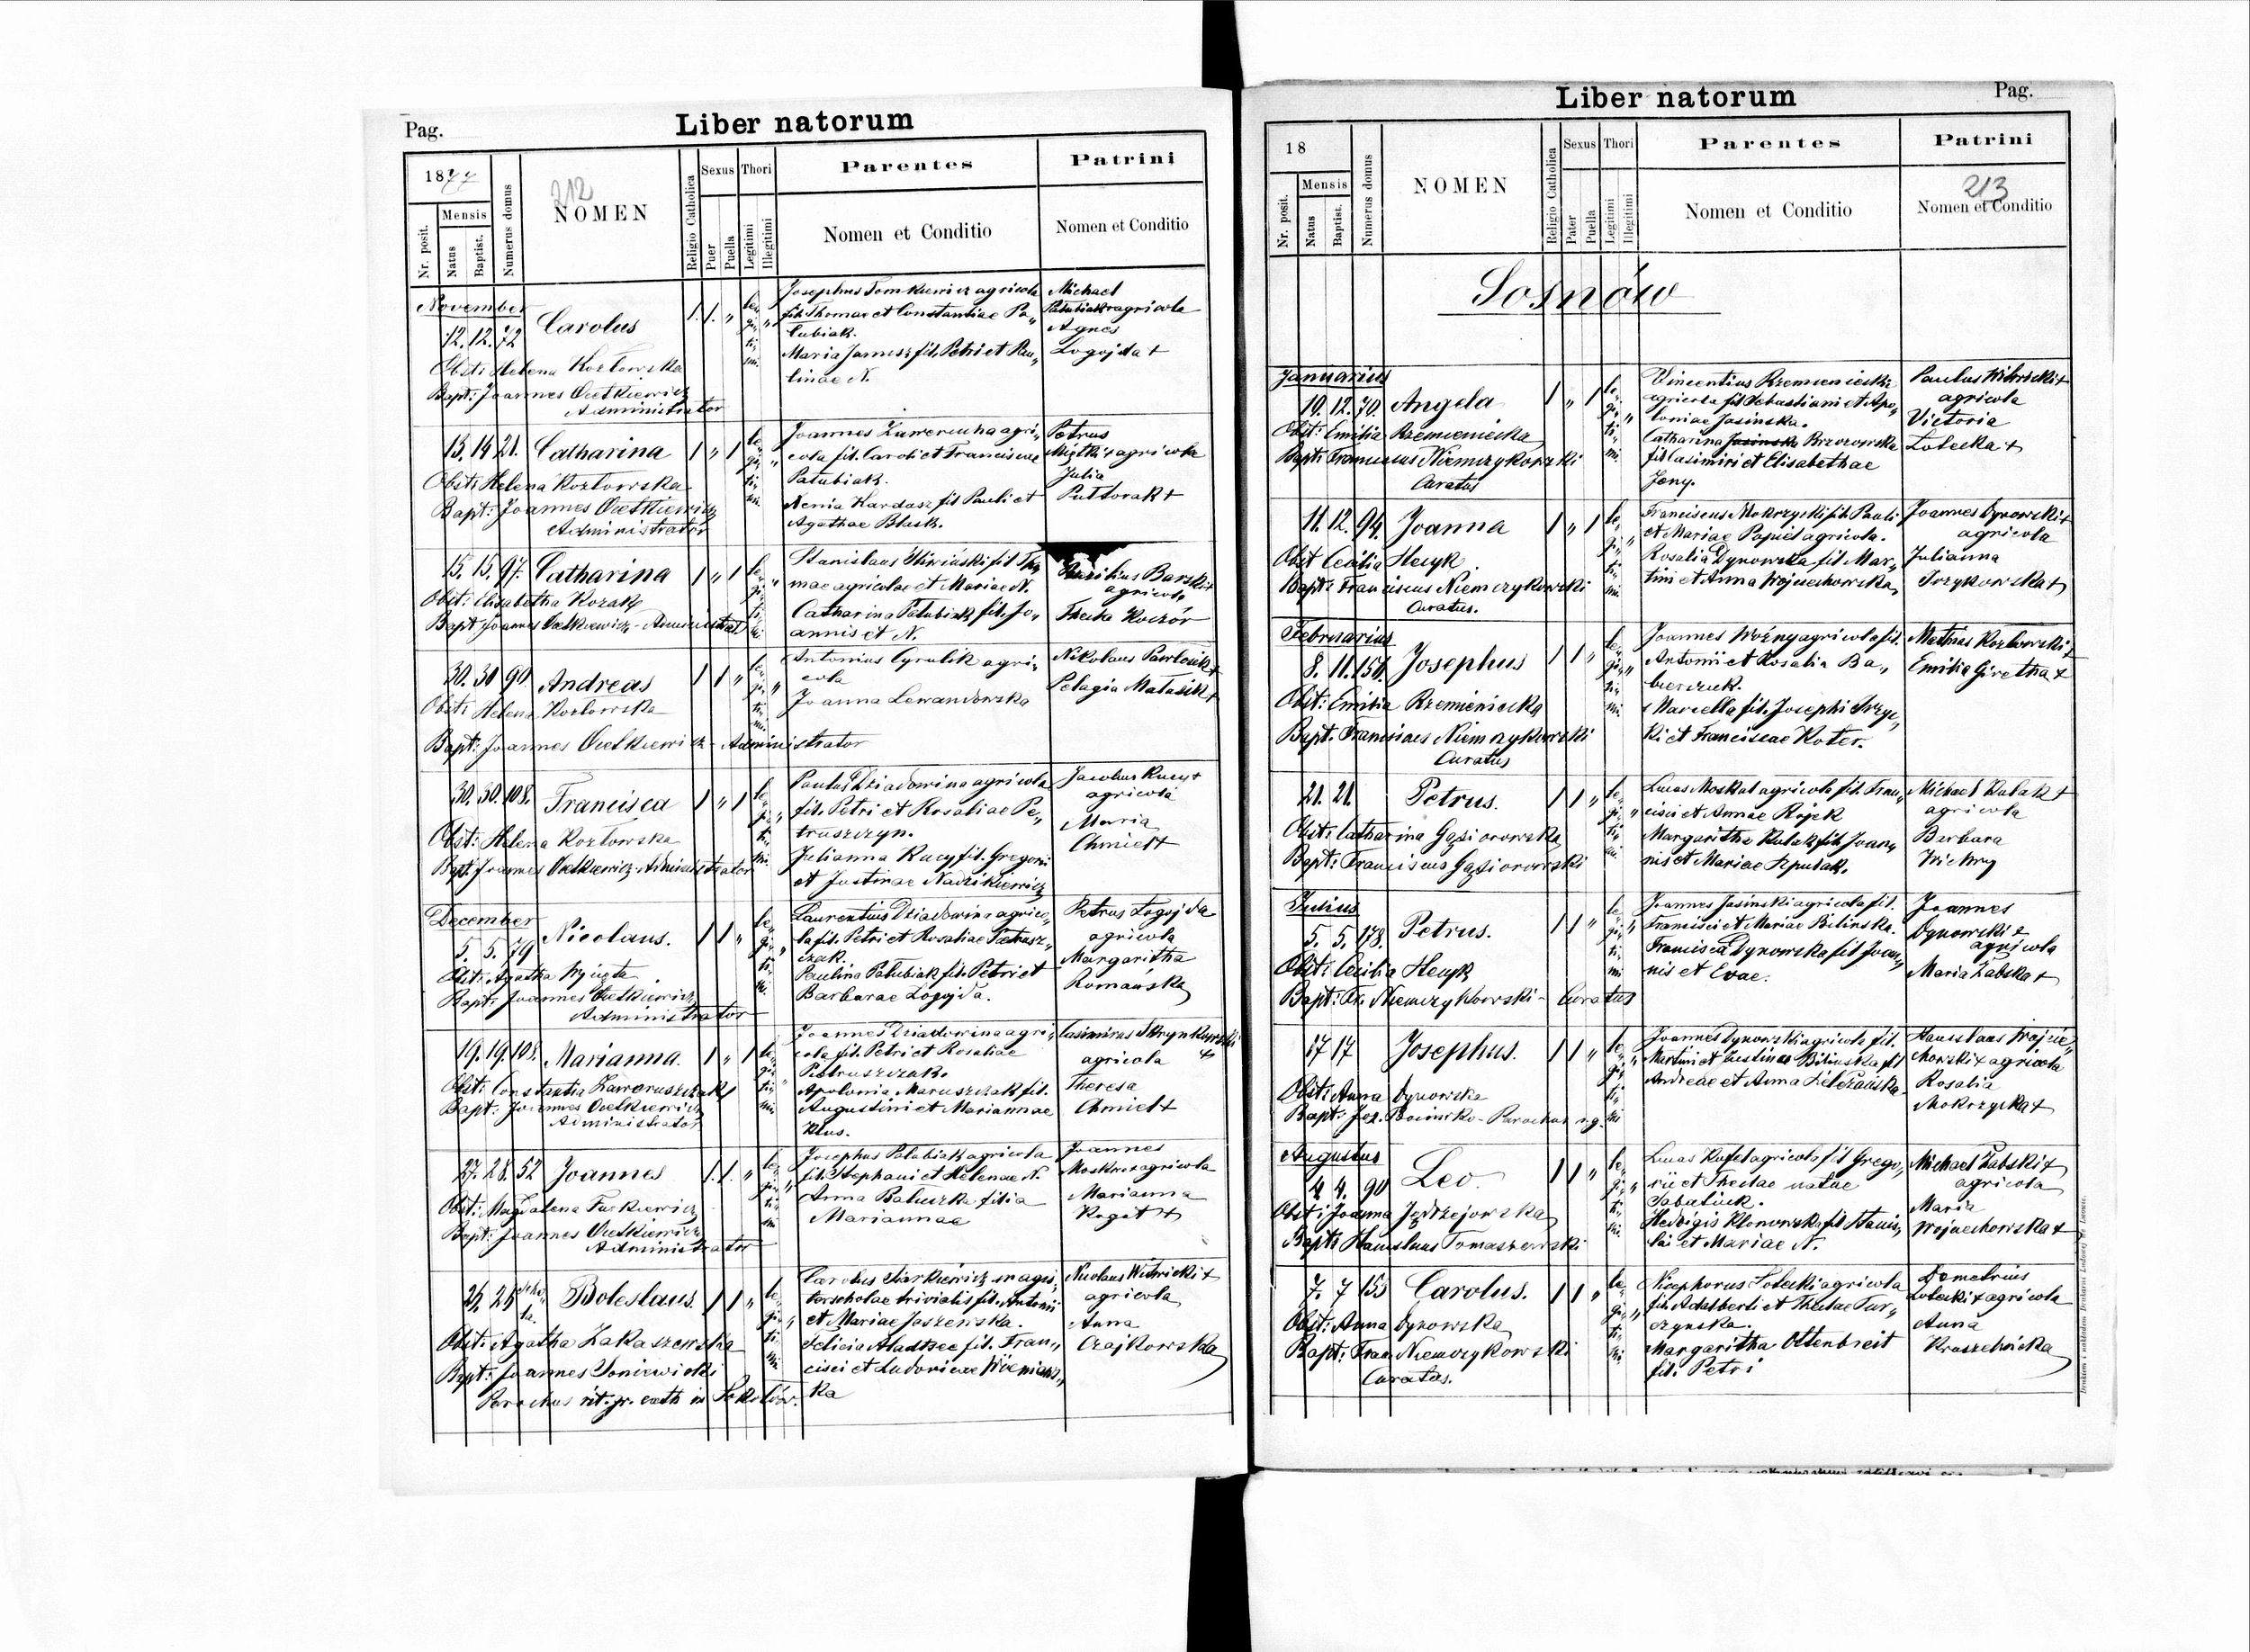 Pag.
Liber natorum
1877
212
Nr. posit.
Mensis
Natus
Baptist.
Numerus domus
NOMEN
Religio Catholica
Sexus
Puer
Puella
Thori
Legitimi
Illegitimi
Parentes
Nomen et Conditio
Patrini
Nomen et Conditio
November
12. 12. 72 Carolus 1. 1. „
Obst: Helena Kozłowska
Bapt: Joannes
Administrator
Josephus Tomkiewicz agricola
fil. Thomae et Constantiae Pa„
lubiak.
Maria fil. Petri et Pau„
linae N.
Michael
agricola
Agnes
Łogojda +
13. 14 21. Catharina 1 „ 1
Obst: Helena Kozłowska
Bapt: Joannes
Administrator
Joannes Zawerucha agri„
cola fil. Caroli et Franciscae
Palubiak.
Xenia Kardasz fil Pauli et
Agathae
Petrus
agricola
Julia
Puttorak +
15. 15. 97. Catharina 1 „ 1
Obst: Elisabetha Kozak
Bapt Joannes
Stanislaus fil Tho
mae agricolae et Mariae N.
Catharina Palubiak fil. Jo„
annis et N.
Barski +
agricola
Thecla
30. 30 90 Andreas 1 1 „
Obst: Helena Kozłowska
Bapt: Joannes - Administrator
Antonius Cyrulik agri„
cola
Joanna Lewandowska
Nikolaus Pawlciuk +
Pelagia Matusik +
30. 30. 108. Francisca 1 „ 1
Obst: Helena Kozłowska
Bapt: Joannes Administrator
Paulus Dziadowina agricola
fil. Petri et Rosaliae Pe„
truszczyn.
Julianna Kucy fil. Gregorii
et Justinae
Jacobus Kucy +
agricola
Maria
Chmiel +
December
5. 5. 79 Nicolaus. 1 1 „
Obst: Agatha
Bapt: Joannes
Administrator
Laurentius Dziadowina agrico„
la fil. Petri et Rosaliae Pietrusz„
czak.
Paulina Palubiak fil. Petri et
Barbarae Łogojda.
Petrus Łogojda
agricola
Margaritha
Romańska
19. 19. 108. Marianna. 1 „ 1
Obst: Constantia
Bapt: Joannes
Administrator
Joannes Dziadowina agri„
cola fil. Petri et Rosaliae
Pietruszczak.
Apolonia Maruszczak fil.
Augustini et Mariannae
Klus.
Casimirus
agricola
Theresa
Chmiel +
27. 28. 52 Joannes 1. 1. „
Obst: Magdalena
Bapt: Joannes
Administrator
Josephus Palubiak agricola
fil. Stephani et Helenae N.
Anna filia
Mariannae
Joannes
agricola
Marianna
+
25. 26 Boleslaus. 1 1 „
Obst: Agatha Zakaszewska
Bapt: Joannes
Parochus rit. gr. cath in
Carolus magis„
ter scholae trivialis fil. Antonii
et Mariae
Felicia fil. Fran„
cisci et Ludovicae
ka
Nicolaus Witwicki +
agricola
Anna
Czajkowska
Liber natorum
Pag.
18
Nr. posit.
Mensis
Natus
Baptist.
Numerus domus
NOMEN
Religio Catholica
Sexus
Pater
Puella
Thori
Legitimi
Illegitimi
Parentes
Nomen et Conditio
Patrini
213
Nomen et Conditio
Sosnów
Januarius
10. 12. 70. Angela 1 „ 1
Obst: Emilia Rzemieniecka
Bapt: Franciscus Niemczykowski
Curatus
Vincentius Rzemieniecki
agricola fil Sebastiani et Apo„
loniae Jasinska.
Catharina Jasinska Brzozowska
fil Casimiri et Elisabethae
Jeny.
Paulus Witwicki +
agricola
Victoria
Łotecka +
11. 12. 94. Joanna 1 „ 1
Obst Cecilia Hecyk
Bapt: Franciscus Niemczykowski
Curatus.
Franciscus Mokrzycki fil. Pauli
et Mariae Papiel agricola.
Rosalia Dynowska fil. Mar„
tini et Anna Wojciechowska
Joannes Dynowski +
agricola
Julianna
Irzykowska +
Februarius
8. 11. 150. Josephus 1 1 „
Obst: Emilia Rzemieniecka
Bapt: Franciscus Niemczykowski
Curatus
Joannes Woźny agricola fil.
Antonii et Rosalia Ba„
bierczuk.
Marcella fil. Josephi
ki et Franciscae Koter.
Mathias Kozłowski +
Emilia Giretha +
21. 21. Petrus. 1 1 „
Obst: Catharina Gąsiorowska
Bapt: Franciscus Gąsiorowski
Lucas Moskal agricola fil. Fran„
cisci et Annae Rojek
Margaritha Kulak fil. Joan„
nis et Mariae Szpulak.
Michael Kulak +
agricola
Barbara
Julius
5. 5. 178. Petrus. 1 1 „
Obst: Cecilia Hecyk
Bapt: Fr. Niemczykowski - Curatus
Joannes Jasinski agricola fil.
Francisci et Mariae Bilinska.
Francisca Dynowska fil Joan„
nis et Evae.
Joannes
Dynowski +
agricola
Maria Żabska +
17 17 Josephus. 1 1 „
Obst: Anna Dynowska
Bapt: Parochus r. g.
Joannes Dynowski agricola fil.
Martini et Justinae Bilinska fil
Andreae et Anna
Stanislaus Wojcie„
chowski + agricola
Rosalia
Mokrzycka +
Augustus
4 4. 90 Leo. 1 1 „
Obst: Joanna Jędrzejowska
Bapt: Stanislaus Tomaszewski
Lucas Kufel agricola fil Grego„
rii et Theclae natae
Sabatiuk.
Hedvigis Klonowska fil Stanis„
lai et Mariae N.
Michael Żabski +
agricola
Maria
Wojciechowska +
7. 7 153 Carolus. 1 1 „
Obst: Anna Dynowska
Bapt: Fran Niemczykowski
Curatus.
Nicephorus Łotecki agricola
fil. Adalberti et Theclae Tur„
czynska.
Margaritha Ottenbreit
fil: Petri
Demetrius
Łotecki + agricola
Anna
Kruszelnicka